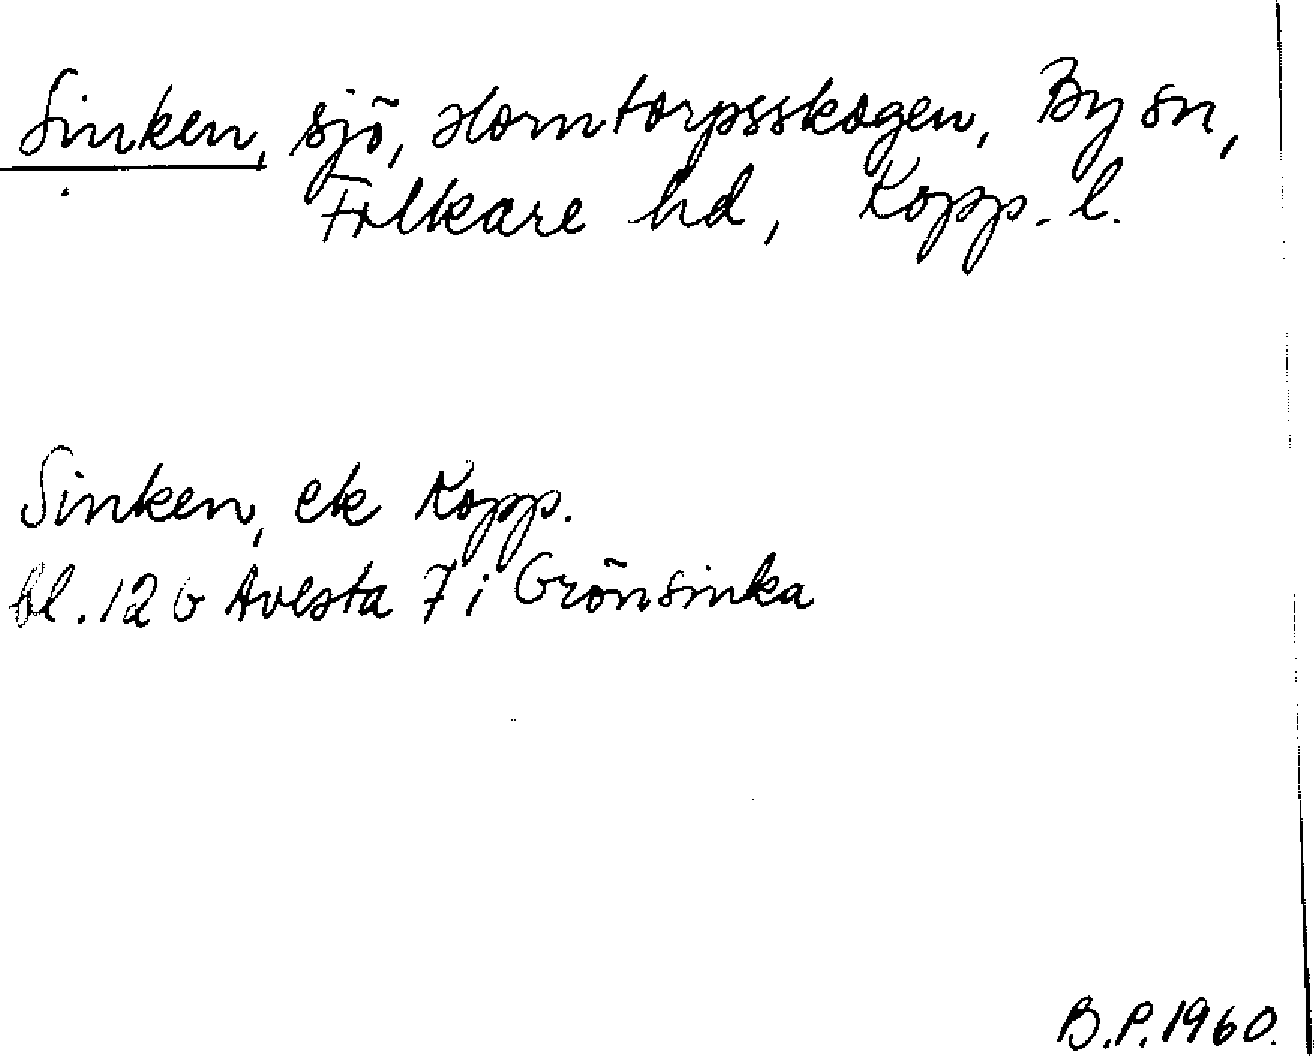 Sinken, sjö, Horntorpsskogen, By sn,
Folkare hd, Kopp. l.
Sinken, ek Kopp.
bl. 12 G Avesta 7 i Grönsinka
B.P. 1960.